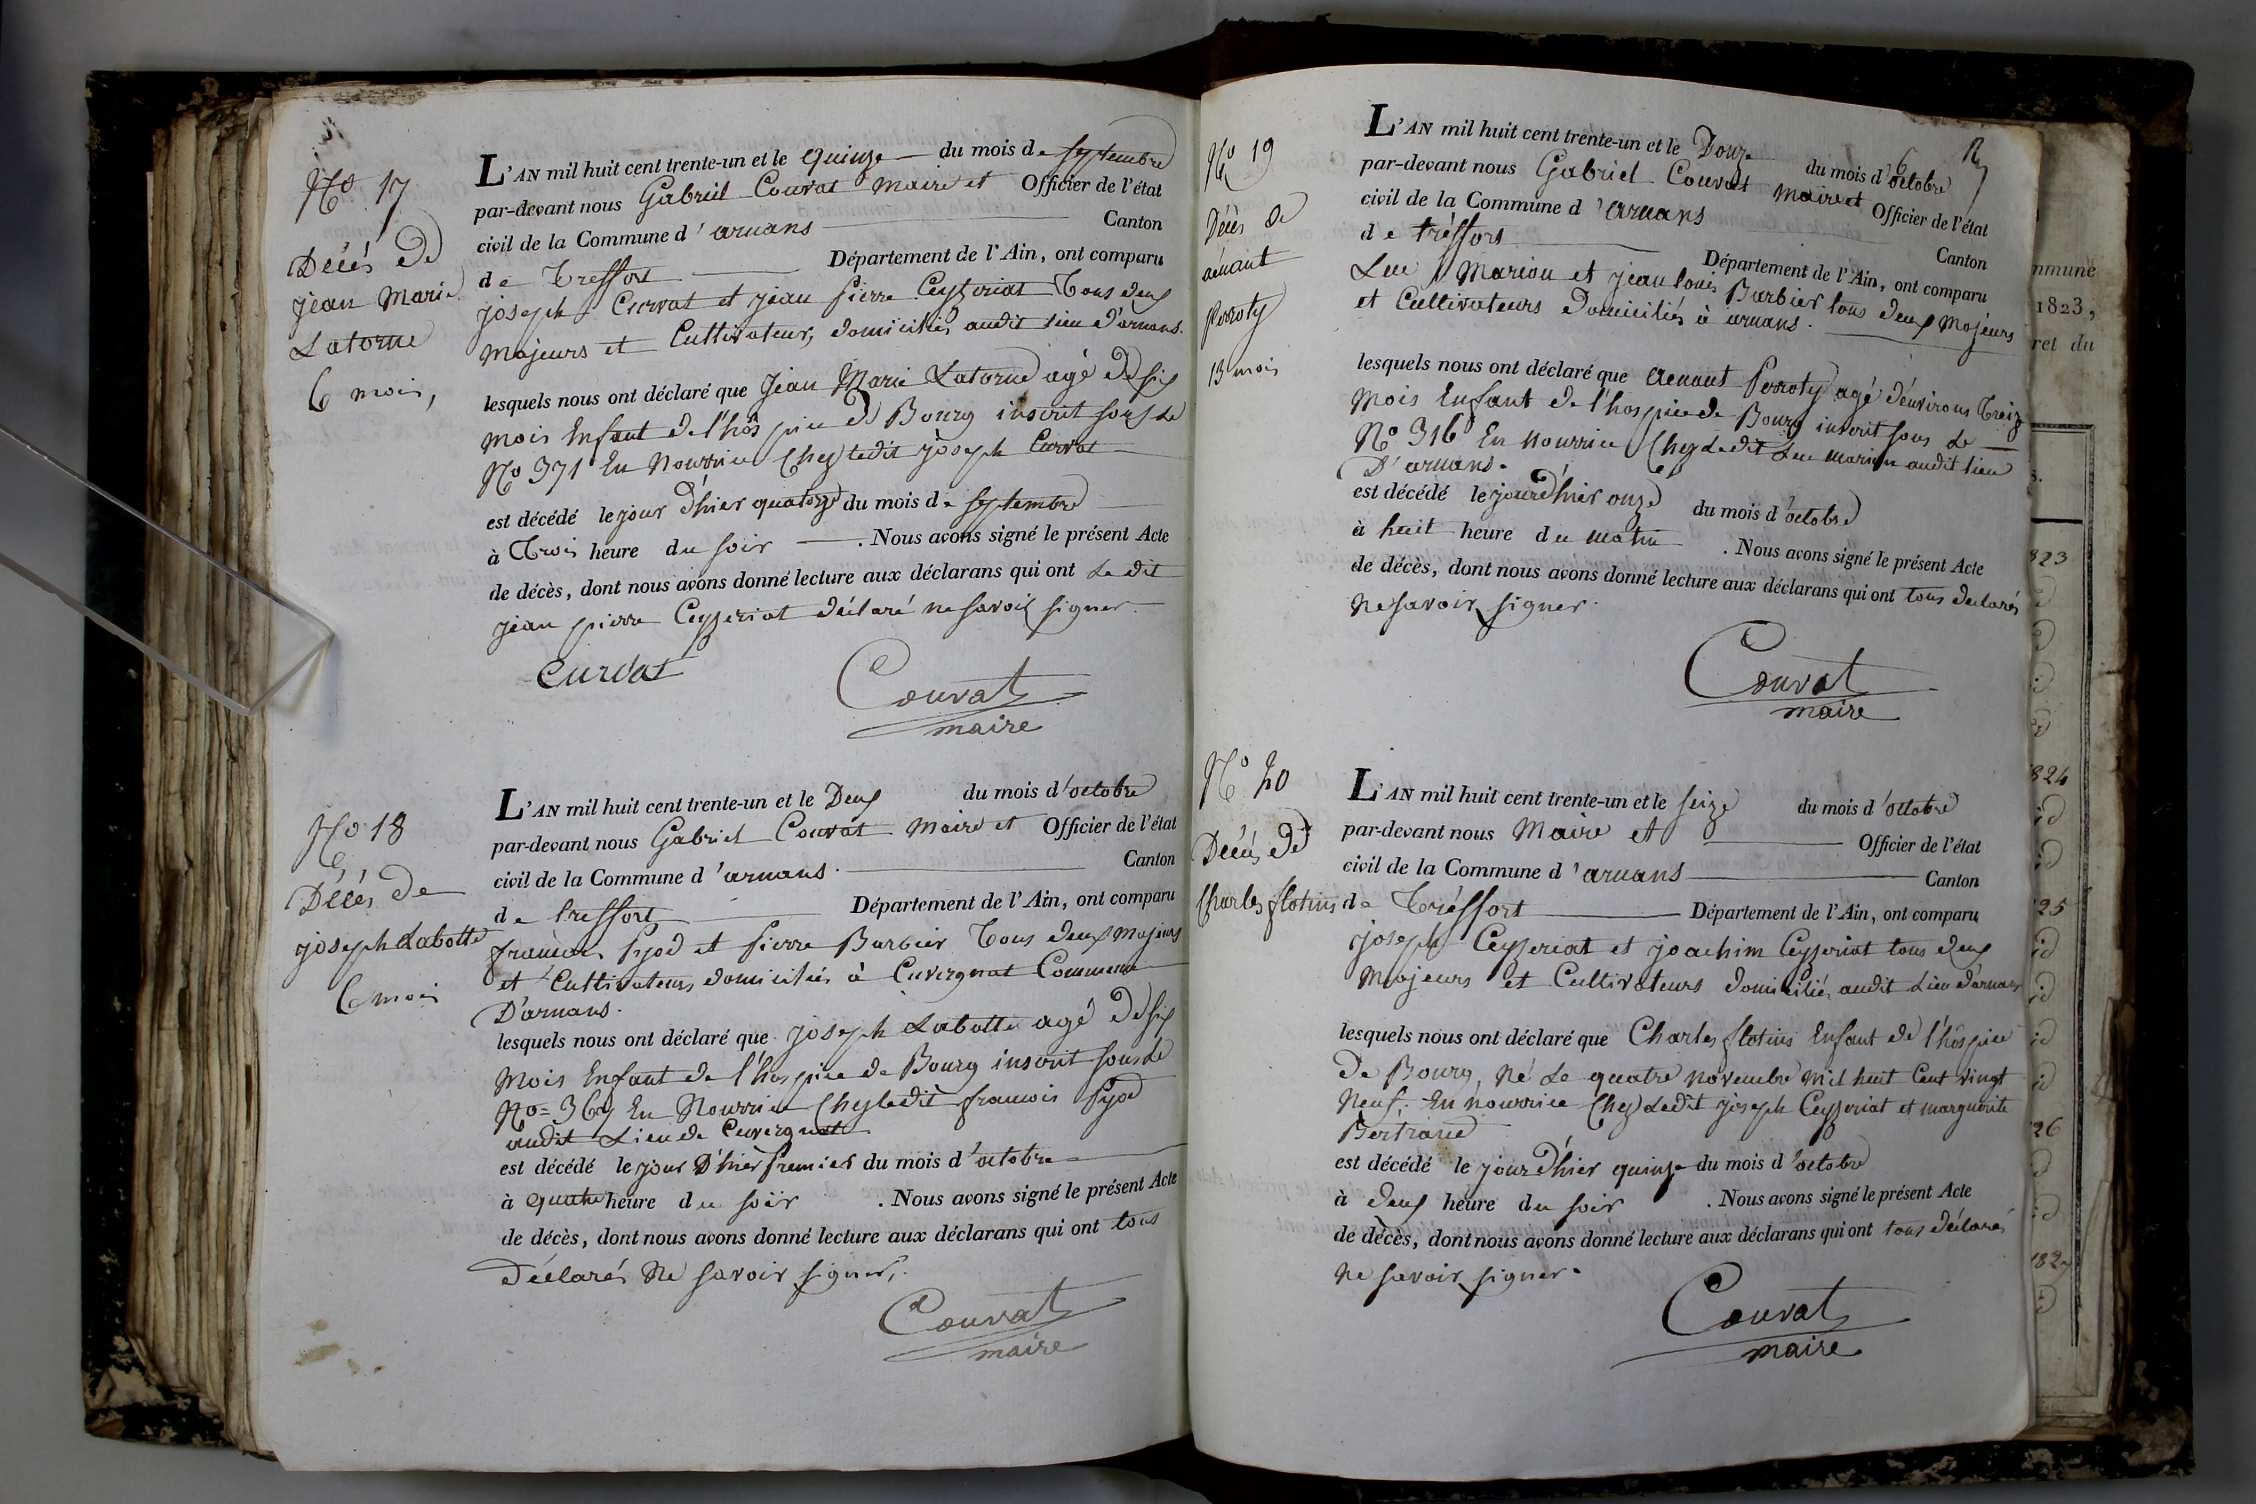 No 17
Décés de
jean Marie
Latorne
6 mois,
L'AN mil huit cent trente-un et le quinze du mois de septembre
par-devant nous Gabriel Couvat maire et Officier de l'état
civil de la Commune d'arnans Canton
de Treffort Département de l'Ain, ont comparu
joseph Curvat et jean pierre Ceyzeriat Tous deux
majeurs et Cultivateurs, domiciliés audit lieu d'arnans.
lesquels nous ont déclaré que jean Marie Latorne agé de six
mois Enfant de l'hospice de Bourg inscrit sous le
No 371 En Nourrice Chez ledit joseph Curvat
est décédé le jour d'hier quatorze du mois de septembre
à Trois heure du soir. Nous avons signé le présent Acte
de décès, dont nous avons donné lecture aux déclarans qui ont Le dit
jean pierre Ceyzeriat déclaré ne savoir signer.
Curvat
Couvat
maire
No 18
Décés de
joseph Labotte
6 mois
L'AN mil huit cent trente-un et le Deux du mois d'octobre
par-devant nous Gabriel Couvat Maire et Officier de l'état
civil de la Commune d'arnans. Canton
de treffort Département de l'Ain, ont comparu
francois et pierre Barbier Tous deux majeurs
et Cultivateurs domiciliés à Cuvergnat Commune
D'arnans.
lesquels nous ont déclaré que joseph Labotte agé de six
Mois Enfant de l'hospice de Bourg inscrit sous le
No = En Nourrice Chez ledit francois
audit Lieu de Cuvergnat
est décédé le jour D'hier premier du mois d'octobre
à quatre heure du soir. Nous avons signé le présent Acte
de décès, dont nous avons donné lecture aux déclarans qui ont tous
déclarés Ne savoir signer,.
Couvat
maire
No 19
Décès de
aénant
perroty
13 mois
L'AN mil huit cent trente-un et le Douze du mois d'octobre
par-devant nous Gabriel Couvat maire et Officier de l'état
civil de la Commune d'arnans Canton
de tréffort Département de l'Ain, ont comparu
Luc Marion et jean louis Barbier tous deux majeurs
et Cultivateurs domiciliés à arnans.
lesquels nous ont déclaré que aenant Perroty agé d'environs Treize
Mois Enfant de l'hospice de Bourg inscrit sous Le
No 316 En nourrice Chez Ledit Luc marion audit lieu
D'arnans.
est décédé le jour d'hier onze du mois d'octobre
à huit heure du matin. Nous avons signé le présent Acte
de décès, dont nous avons donné lecture aux déclarans qui ont tous déclarés
Ne savoir signer.
Couvat
maire
No 20
Décés de
Charles flotins
L'AN mil huit cent trente-un et le seize du mois d'octobre
par-devant nous Maire et Officier de l'état
civil de la Commune d'arnans Canton
de Tréffort Département de l'Ain, ont comparu
joseph Ceyzeriat et joachim Ceyzeriat tous deux
majeurs et Cultivateurs domiciliés audit Lieu d'arnans
lesquels nous ont déclaré que Charles flotins Enfant de l'hospice
de Bourg, Né Le quatre novembre mil huit Cent vingt
Neuf. En nourrice Chez Ledit joseph Ceyzeriat et marguerite
Bertrand
est décédé le jour d'hier quinze du mois d'octobre
à deux heure du soir. Nous avons signé le présent Acte
de décès, dont nous avons donné lecture aux déclarans qui ont tous déclarés
ne savoir signer.
Couvat
maire
nmune
1823,
ret du
823
824
25
26
182